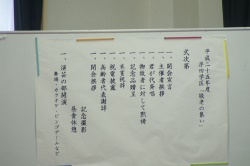 平成二十五年度
式次第
一、開会宣言
一、主催者挨拶
一、君が代斉唱
一、物故者に対して黙祷
一、記念品贈呈
一、来賓祝辞
一、祝電披露
一、高齢者代表謝辞
一、閉会挨拶
記念撮影
昼食休憩
一、演芸の部開演